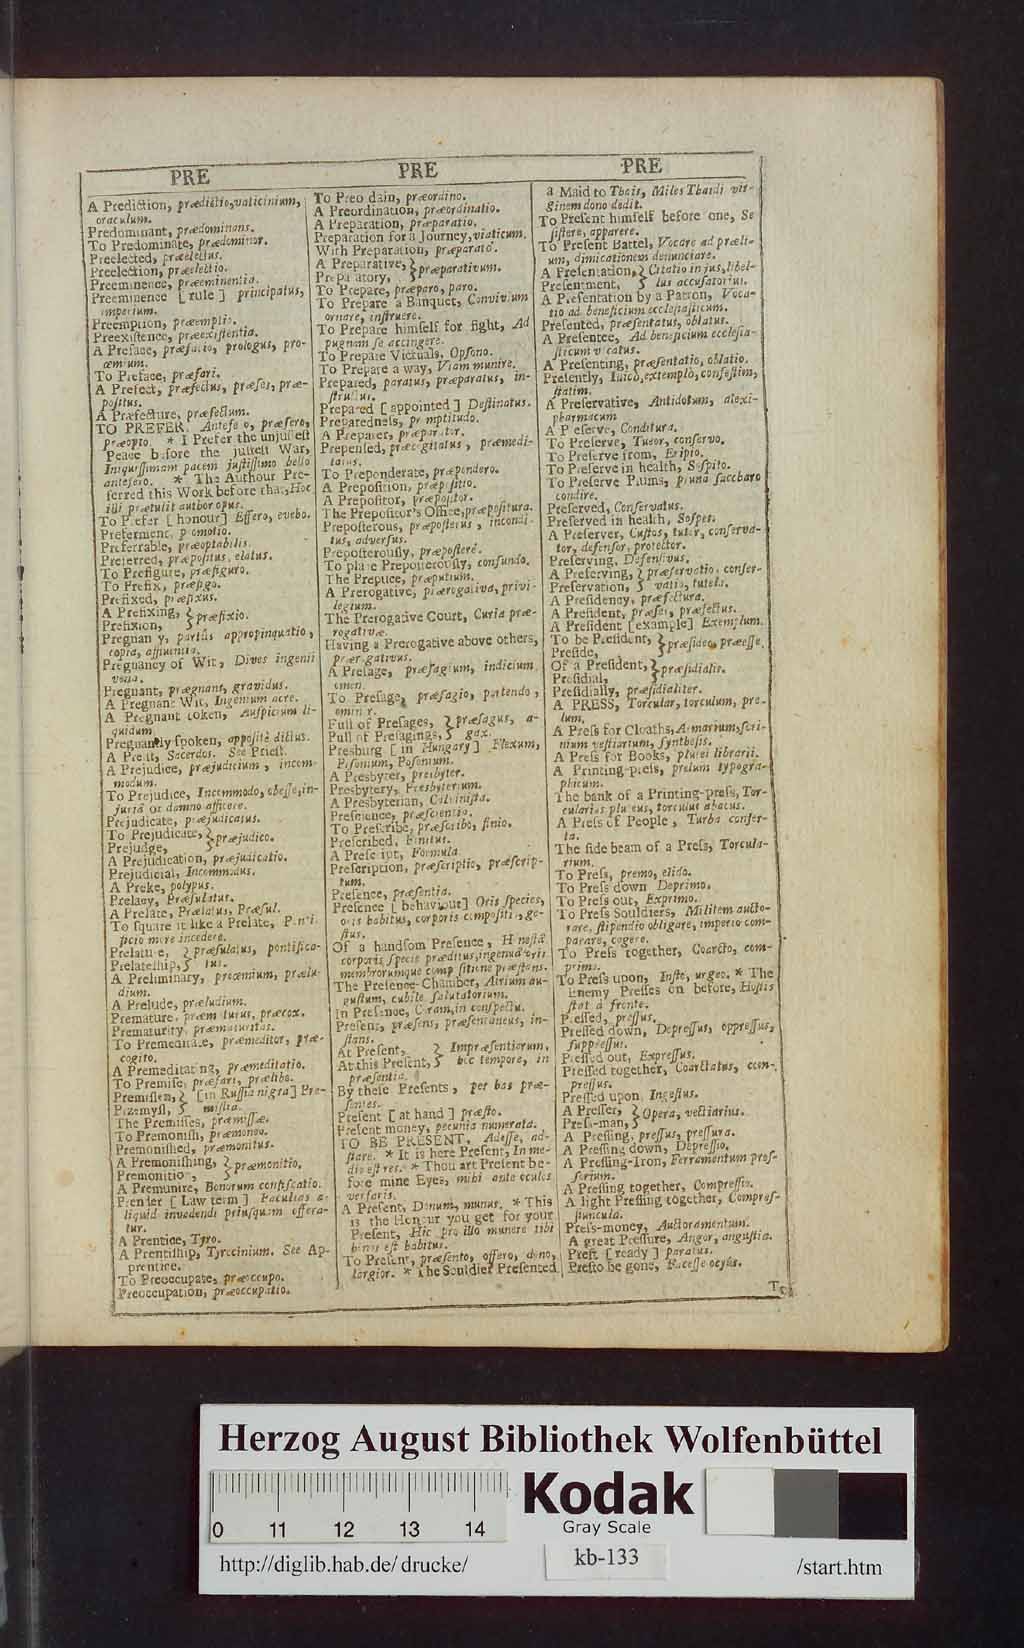 PRE
A Prediction, prædictio, vaticinium,
oraculum.
Predominant, prædominans.
To Predominate, prædominor.
Preelected, præelectus.
Preelection, præelectio.
Preeminence, præeminentia.
Preeminence [rule] principatus,
imperium.
Preemption, præemptio.
Preexistence, præexistentia.
A Preface, præfatio, prologus, pro-
œmium.
To Preface, præfari.
A Prefect, præfectus, præses, præ-
positus.
A Præfecture, præfectum.
TO PREFER, Antefero, præfero,
præopto. * I Prefer the unjustest
Peace before the justest War,
Iniquissimam pacem justissimo bello
antefero. * The Authour Pre-
ferred this Work before that, Hoc
illi prætulit author opus.
To Prefer [honour] Effero, eveho.
Preferment, promotio.
Preferrable, præoptabilis.
Preferred, præpositus, elatus.
To Prefigure, præfiguro.
To Prefix, præfigo.
Prefixed, præfixus.
A Prefixing, } præfixio.
Prefixion,
Pregnancy, partûs appropinquatio,
copia, affluentia.
Pregnancy of Wit, Dives ingenii
vena.
Pregnant, prægnans, gravidus.
A Pregnant Wit, Ingenium acre.
A Pregnant token, Auspicium li-
quidum.
Pregnantly spoken, appositè dictus.
A Preist, Sacerdos. See Priest.
A Prejudice, præjudicium, incom-
modum.
To Prejudice, Incommodo, obesse, in-
juriâ or damno afficere.
Prejudicate, præjudicatus.
To Prejudicate, } præjudico.
Prejudge,
A Prejudication, præjudicatio.
Prejudicial, Incommodus.
A Preke, polypus.
Prelacy, Præsulatus.
A Prelate, Prælatus, Præsul.
To square it like a Prelate, Ponti-
ficio more incedere.
Prelature, } præsulatus, pontifica-
Prelateship, } tus.
A Preliminary, proœmium, prælu-
dium.
A Prelude, præludium.
Premature, præmaturus, præcox.
Prematurity, præmaturitas.
To Premeditate, præmeditor, præ-
cogito.
A Premeditating, præmeditatio.
To Premise, præfari, prælibo.
Premislen, } [in Russia nigra] Pre-
Przemysl, } mislia.
The Premisses, præmissæ.
To Premonish, præmoneo.
Premonished, præmonitus.
A Premonishing, } præmonitio.
Premonition,
A Premunire, Bonorum confiscatio.
Prender [Law term] Facultas a-
liquid invadendi priusquam offera-
tur.
A Prentice, Tyro.
A Prentiship, Tyrocinium. See Ap-
prentice.
To Preoccupate, præoccupo.
Preoccupation, præoccupatio.
PRE
To Preordain, præordino.
A Preordination, præordinatio.
A Preparation, præparatio.
Preparation for a Journey, viaticum.
With Preparation, præparatò.
A Preparative, } præparativum.
Preparatory,
To Prepare, præparo, paro.
To Prepare a Banquet, Convivium
ornare, instruere.
To Prepare himself for fight, Ad
pugnam se accingere.
To Prepare Victuals, Opsono.
To Prepare a way, Viam munire.
Prepared, paratus, præparatus, in-
structus.
Prepared [appointed] Destinatus.
Preparedness, promptitudo.
A Preparer, præparator.
Prepensed, præcogitatus, præmedi-
tatus.
To Preponderate, præpondero.
A Preposition, præpositio.
A Prepositor, præpositor.
The Prepositor's Office, præpositura.
Preposterous, præposterus, incondi-
tus, adversus.
Preposterously, præposterè.
To place Preposterously, confundo.
The Prepuce, præputium.
A Prerogative, prærogativa, privi-
legium.
The Prerogative Court, Curia præ-
rogativæ.
Having a Prerogative above others,
prærogativus.
A Presage, præsagium, indicium,
omen.
To Presage, præsagio, portendo,
ominor.
Full of Presages, } præsagus, a-
Full of Presagings, } gax.
Presburg [in Hungary] Flexum,
Pisonium, Posonium.
A Presbyter, presbyter.
Presbytery, Presbyterium.
A Presbyterian, Calvinista.
Prescience, præscientia.
To Prescribe, præscribo, finio.
Prescribed, Finitus.
A Prescript, Formula.
Prescription, præscriptio, præscrip-
tum.
Presence, præsentia.
Presence [behaviour] Oris species,
oris habitus, corporis compositio, ge-
stus.
Of a handsom Presence, Honestâ
corporis specie præditus, ingenuâ oris
membrorumque compositione præstans.
The Presence-Chamber, Atrium au-
gustum, cubile salutatorium.
In Presence, Coram, in conspectu.
Present, præsens, præsentaneus, in-
stans.
At Present, } Impræsentiarum,
At this Present, } hoc tempore, in
præsentia.
By these Presents, per has præ-
sentes.
Present [at hand] præsto.
Present money, pecunia numerata.
TO BE PRESENT, Adesse, ad-
stare. * It is here Present, In me-
dio est res. * Thou art Present be-
fore mine Eyes, mihi ante oculos
versaris.
A Present, Donum, munus. * This
is the Honour you get for your
Present, Hic pro illo munere tibi
honos est habitus.
To Present, præsento, offero, dono,
largior. * The Souldier Presented
PRE
a Maid to Thais, Miles Thaidi vir-
ginem dono dedit.
To Present himself before one, Se
sistere, apparere.
To Present Battel, Vocare ad præli-
um, dimicationem denunciare.
A Presentation, } Citatio in jus, libel-
Presentment, } lus accusatorius.
A Presentation by a Patron, Voca-
tio ad beneficium ecclesiasticum.
Presented, præsentatus, oblatus.
A Presentee, Ad beneficium ecclesia-
sticum vocatus.
A Presenting, præsentatio, oblatio.
Presently, Illicò, extemplò, confestim,
statim.
A Preservative, Antidotum, alexi-
pharmacum
A Preserve, Conditura.
To Preserve, Tueor, conservo.
To Preserve from, Eripio.
To Preserve in health, Sospito.
To Preserve Plums, pruna saccharo
condire.
Preserved, Conservatus.
Preserved in health, Sospes.
A Preserver, Custos, tutor, conserva-
tor, defensor, protector.
Preserving, Defensivus.
A Preserving, } præservatio, conser-
Preservation, } vatio, tutela.
A Presidency, præfectura.
A President, præses, præfectus.
A President [example] Exemplum.
To be President, } præsideo, præesse.
Preside,
Of a President, } præsidialis.
Presidial,
Presidially, præsidialiter.
A PRESS, Torcular, torculum, pre-
lum.
A Press for Cloaths, Armarium, scri-
nium vestiarium, synthesis.
A Press for Books, plutei librarii.
A Printing-press, prelum typogra-
phicum.
The bank of a Printing-press, Tor-
cularius pluteus, torculus abacus.
A Press of People, Turba confer-
ta.
The side beam of a Press, Torcula-
rium.
To Press, premo, elido.
To Press down Deprimo.
To Press out, Exprimo.
To Press Souldiers, Militem aucto-
rare, stipendio obligare, imperio com-
parare, cogere.
To Press together, Coarcto, com-
primo.
To Press upon, Insto, urgeo. * The
Enemy Presses on before, Hostis
stat à fronte.
Pressed, pressus.
Pressed down, Depressus, oppressus,
suppressus.
Pressed out, Expressus.
Pressed together, Coarctatus, com-
pressus.
Pressed upon, Ingestus.
A Presser, } Opera, vectiarius.
Press-man,
A Pressing, pressus, pressura.
A Pressing down, Depressio.
A Pressing-Iron, Ferramentum pres-
sorium.
A Pressing together, Compressio.
A light Pressing together, Compres-
siuncula.
Press-money, Auctoramentum.
A great Pressure, Angor, angustia.
Prest [ready] paratus.
Presto be gone, Facesse ocyus.
To
Herzog August Bibliothek Wolfenbüttel
0 11 12 13 14
Kodak
Gray Scale
http://diglib.hab.de/drucke/
kb-133
/start.htm